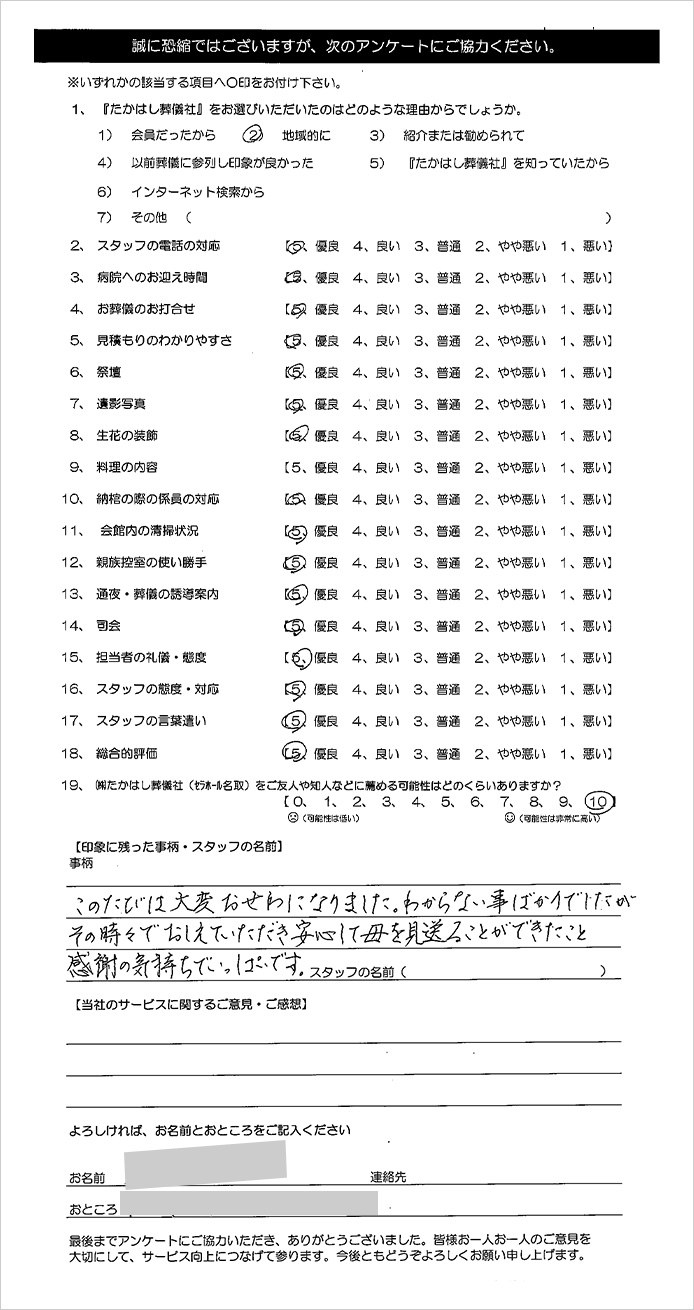 誠に恐縮ではございますが、次のアンケートにご協力ください。
※いずれかの該当する項目へ〇印をお付け下さい。
1、『たかはし葬儀社』をお選びいただいたのはどのような理由からでしょうか。
1） 会員だったから ② 地域的に 3） 紹介または勧められて
4） 以前葬儀に参列し印象が良かった 5） 『たかはし葬儀社』を知っていたから
6） インターネット検索から
7） その他 （ ）
2、 スタッフの電話の対応 【5、優良 4、良い 3、普通 2、やや悪い 1、悪い】
3、 病院へのお迎え時間 【5、優良 4、良い 3、普通 2、やや悪い 1、悪い】
4、 お葬儀のお打合せ 【5、優良 4、良い 3、普通 2、やや悪い 1、悪い】
5、 見積もりのわかりやすさ 【5、優良 4、良い 3、普通 2、やや悪い 1、悪い】
6、 祭壇 【5、優良 4、良い 3、普通 2、やや悪い 1、悪い】
7、 遺影写真 【5、優良 4、良い 3、普通 2、やや悪い 1、悪い】
8、 生花の装飾 【5、優良 4、良い 3、普通 2、やや悪い 1、悪い】
9、 料理の内容 【5、優良 4、良い 3、普通 2、やや悪い 1、悪い】
10、 納棺の際の係員の対応 【5、優良 4、良い 3、普通 2、やや悪い 1、悪い】
11、 会館内の清掃状況 【5、優良 4、良い 3、普通 2、やや悪い 1、悪い】
12、 親族控室の使い勝手 【5、優良 4、良い 3、普通 2、やや悪い 1、悪い】
13、 通夜・葬儀の誘導案内 【5、優良 4、良い 3、普通 2、やや悪い 1、悪い】
14、 司会 【5、優良 4、良い 3、普通 2、やや悪い 1、悪い】
15、 担当者の礼儀・態度 【5、優良 4、良い 3、普通 2、やや悪い 1、悪い】
16、 スタッフの態度・対応 【5、優良 4、良い 3、普通 2、やや悪い 1、悪い】
17、 スタッフの言葉遣い 【5、優良 4、良い 3、普通 2、やや悪い 1、悪い】
18、 総合的評価 【5、優良 4、良い 3、普通 2、やや悪い 1、悪い】
19、 ㈱たかはし葬儀社（ｾﾗﾎｰﾙ名取）をご友人や知人などに薦める可能性はどのくらいありますか？
【 0、 1、 2、 3、 4、 5、 6、 7、 8、 9、 10 】
☹（可能性は低い） ☺（可能性は非常に高い）
【印象に残った事柄・スタッフの名前】
事柄
このたびは大変おせわになりました。わからない事ばかりでしたが
その時々でおしえていただき安心して母を見送ることができたこと
感謝の気持ちでいっぱいです。スタッフの名前（ ）
【当社のサービスに関するご意見・ご感想】
よろしければ、お名前とおところをご記入ください
お名前 連絡先
おところ
最後までアンケートにご協力いただき、ありがとうございました。皆様お一人お一人のご意見を
大切にして、サービス向上につなげて参ります。今後ともどうぞよろしくお願い申し上げます。